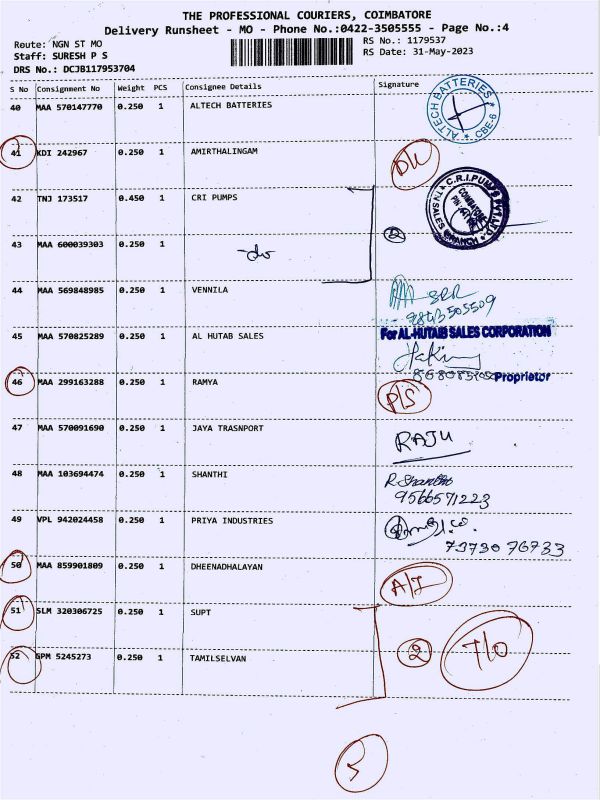 THE PROFESSIONAL COURIERS, COIMBATORE
Delivery Runsheet - MO - Phone No.:0422-3505555 - Page No.:4
Route: NGN ST MO
RS No.: 1179537
Staff: SURESH P S
RS Date: 31-May-2023
DRS No.: DCJB117953704
S No Consignment No Weight PCS Consignee Details Signature
40 MAA 570147770 0.250 1 ALTECH BATTERIES
ALTECH BATTERIES CBE-6
41 KDI 242967 0.250 1 AMIRTHALINGAM
D/L
42 TNJ 173517 0.450 1 CRI PUMPS
C.R.I.PUMPS COIMBATORE SALES BRANCH
43 MAA 600039303 0.250 1 -do 2
44 MAA 569848985 0.250 1 VENNILA
9843505509
45 MAA 570825289 0.250 1 AL HUTAB SALES
For AL-HUTAIB SALES CORPORATION
Proprietor
46 MAA 299163288 0.250 1 RAMYA
P/S
47 MAA 570091690 0.250 1 JAYA TRASNPORT
RAJU
48 MAA 103694474 0.250 1 SHANTHI
R. Shanthi
9566571223
49 VPL 942024458 0.250 1 PRIYA INDUSTRIES
73730 76733
50 MAA 859901809 0.250 1 DHEENADHALAYAN
A/I
51 SLM 320306725 0.250 1 SUPT
52 GPM 5245273 0.250 1 TAMILSELVAN
2 T/O
5